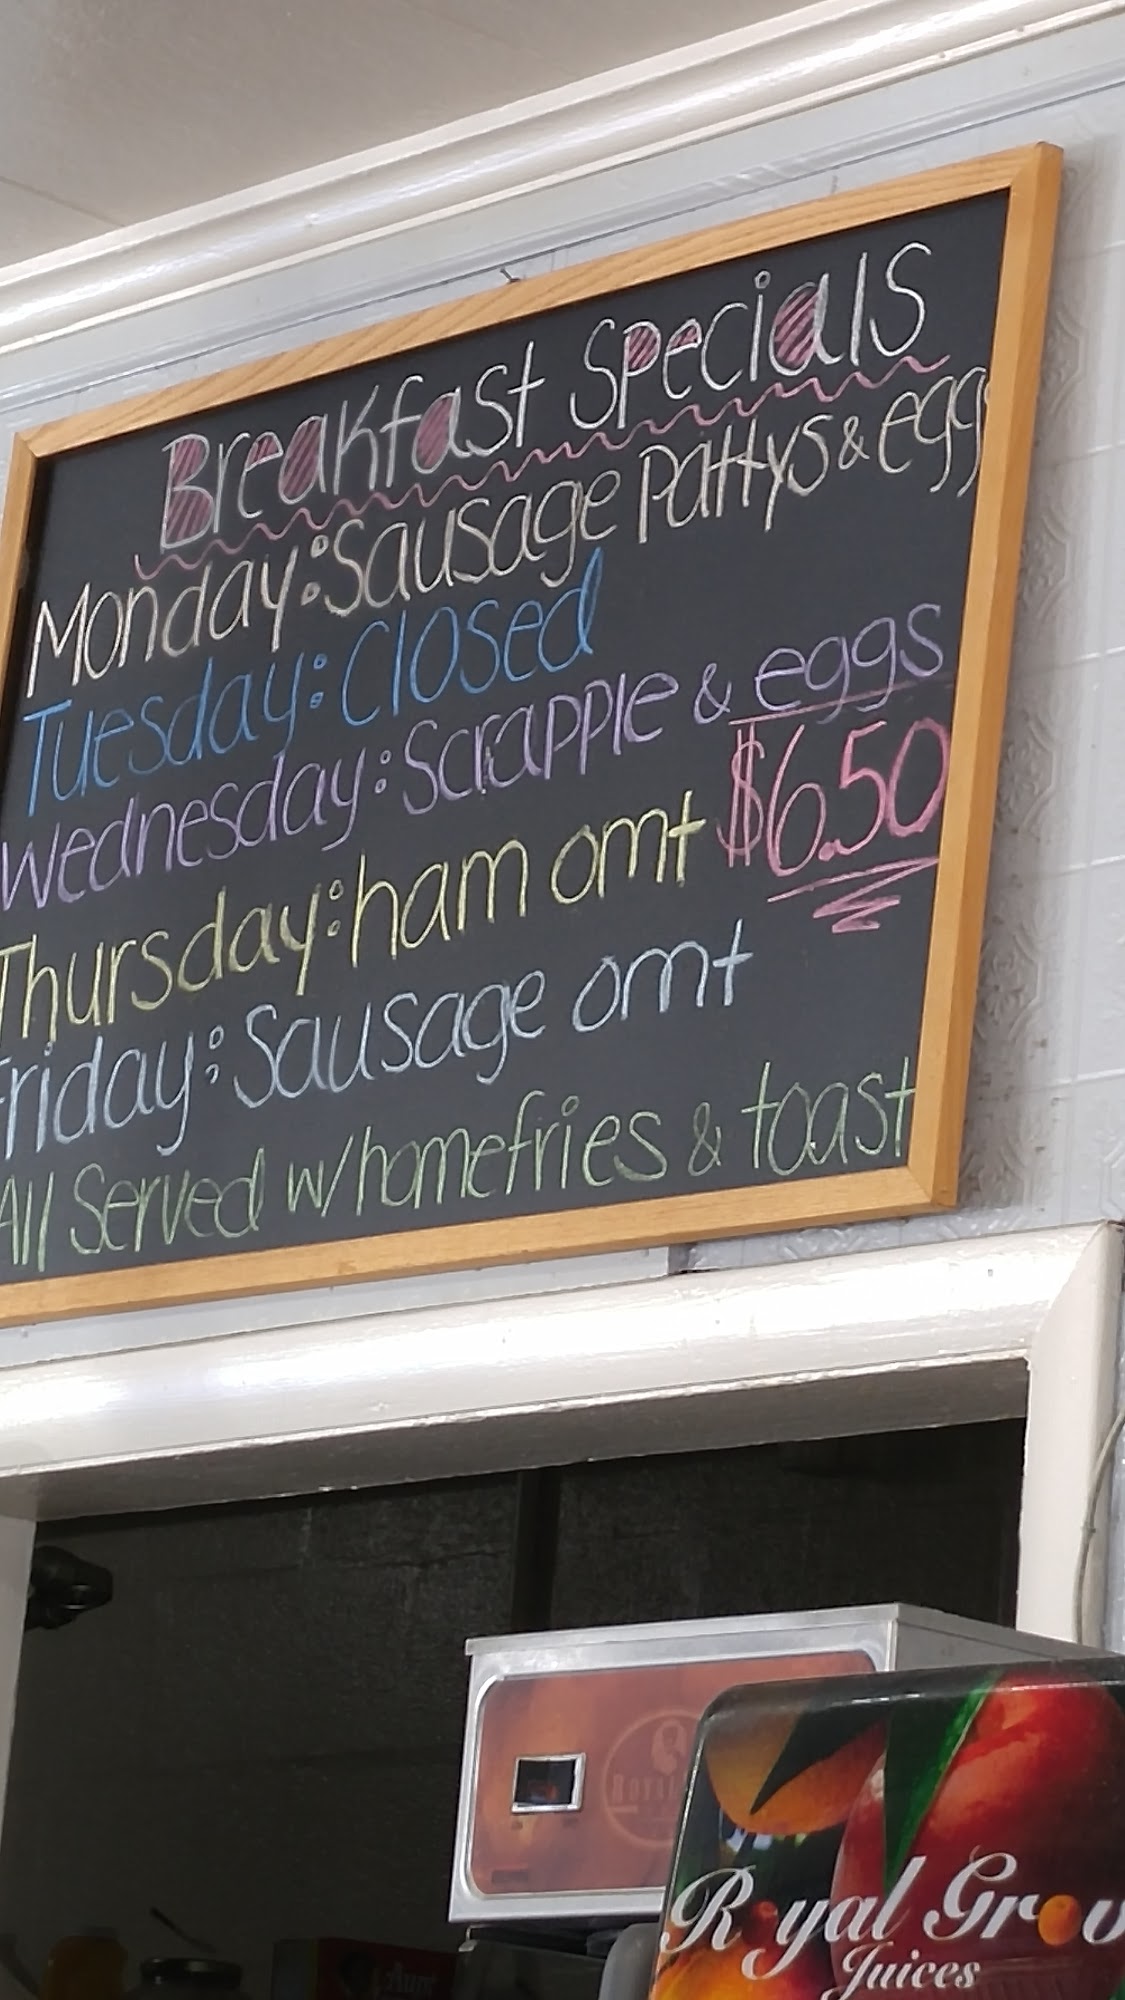 Breakfast Specials
Monday: Sausage Pattys & egg
Tuesday: Closed
Wednesday: Scrapple & eggs
$6.50
Thursday: ham omt
Friday: Sausage omt
All Served w/homefries & toast
Royal Grov
Juices